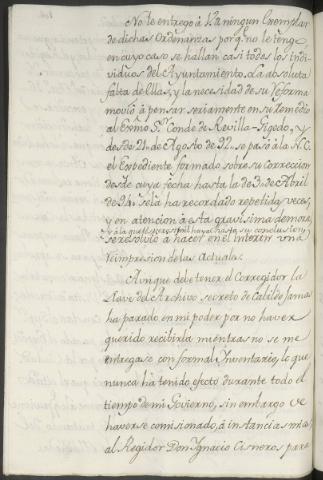 No le entrego à V.S. ningun Exemplar
de dichas Ordenanzas porq.e no le tengo
en cuyo caso se hallan casi todos los indi-
viduos del Ayuntamiento. La absoluta
falta de ellas, y la necesidad de su reforma
movió à pensar seriamente en su remedio
al Exmo S.or Conde de Revilla-Gigedo, y
desde 21 de Agosto de 92 se pasó à la N.C.
el Expediente formado sobre su Correccion
desde cuya fecha hasta la de 3 de Abril
de 94 se la ha recordado repetidas veces,
y en atencion à esta gravisima demora,
y à la que es preciso haya hasta su conclusion
se resolvió à hacer en el interin una
reimpresion de las Actuales.
Aunque debe tener el Corregidor la
Llave del Archivo secreto de Cabildo jamas
ha parado en mi poder por no haver
querido recibirla mientras no se me
entregase con formal Inventario, lo que
nunca há tenido efecto durante todo el
tiempo de mi Govierno, sin embargo de
haverse comisionado, à instancia mia,
al Regidor Don Ignacio Cisneros para